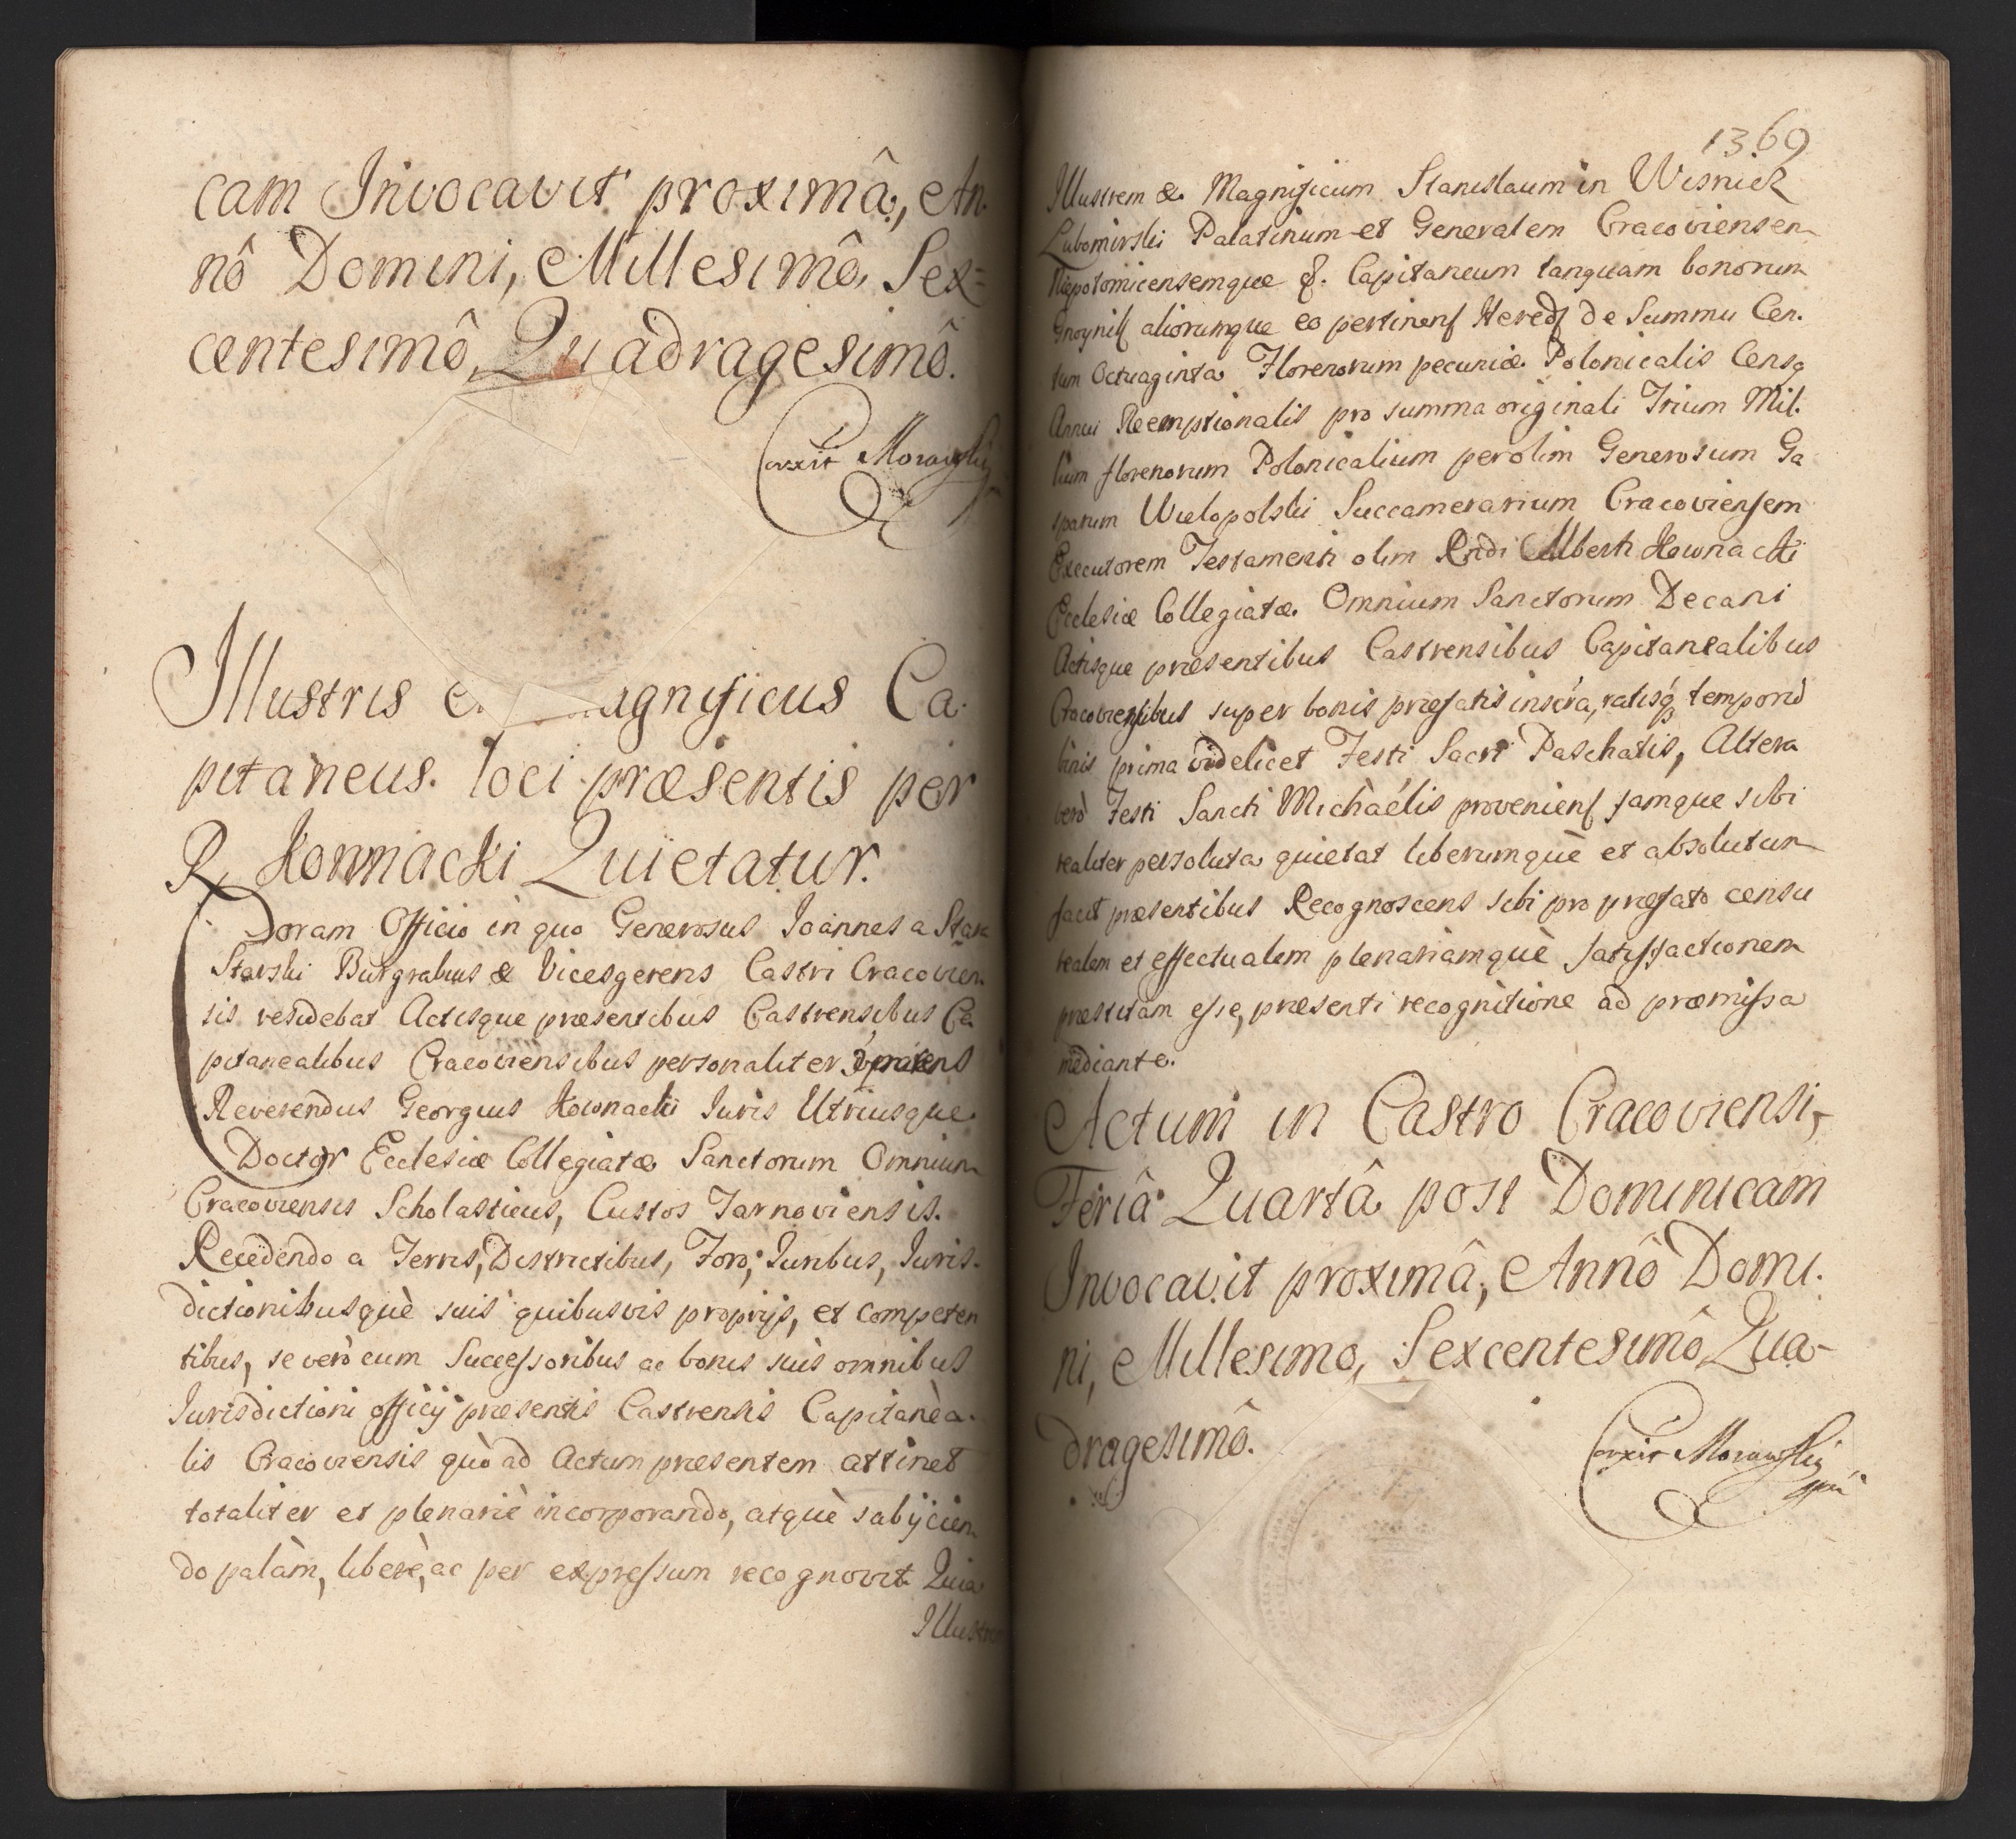 cam Invocavit proximâ, An
nô Domini, Millesimô, Sex=
centesimô, Quadragesimô.
Illustris agnificus Ca.
pitaneus. loci præsentis per
R. Kownacki Quietatur.
Coram Officio in quo Generosus Ioannes a Star
Starski Burgrabius & Vicesgerens Castri Cracovien.
sis residebat Actisque præsentibus Castrensibus Ca
pitanealibus Cracoviensibus personaliter
Reverendus Georgius Kownacki Iuris Utriusque
Doctor Ecclesiæ Collegiatæ Sanctorum Omnium
Cracoviensis Scholasticus, Custos Tarnoviensis.
Recedendo a Terris, Districtibus, Foro, Iuribus, Iuris.
dictionibusquè suis quibusvis proprijs, et competen
tibus, se verò cum Successoribus ac bonis suis omnibus
Iurisdictioni officij præsentis Castrensis Capitanèa.
lis Cracoviensis quò ad Actum præsentem attinet
totaliter et plenariè incorporando, atquè subijcien
do palàm, liberè, ac per expressum recognovit Quia
Illustrem
1369
Illustrem & Magnificum Stanislaum in Wisnicz
Lubomirski Palatinum et Generalem Cracoviensem
Niepolomicensemque &. Capitaneum tanquam bonorum
aliorumque eo pertinens Hered de Summu Cen.
tum Octuaginta Florenorum pecuniæ Polonicalis Censq
Annui Reemptionalis pro summa originali Trium Mil.
lium florenorum Polonicalium per olim Generosum Ga
sparum Wielopolski Succamerarium Cracoviensem
Executorem Testamenti olim Rndi Alberti Kownacki
Ecclesiæ Collegiatæ Omnium Sanctorum Decani
Actisque præsentibus Castrensibus Capitanealibus
Cracoviensibus super bonis præfatis inscra, ratisq temporib
binis prima videlicet Festi Sacri Paschatis, Altera
verò Festi Sancti Michaélis proveniens jamque sibi
realiter persoluta quietat liberumquè et absolutum
facit præsentibus Recognoscens sibi pro præfato censu
realem et effectualem plenariamquè satisfactionem
præstitam esse, præsenti recognitione ad præmissa
mediante.
Actum in Castro Cracoviensi,
Feriâ Quartâ post Dominicam
Invocavit proximâ, Annô Domi.
ni, Millesimo, Sexcentesimô Qua-
dragesimô.